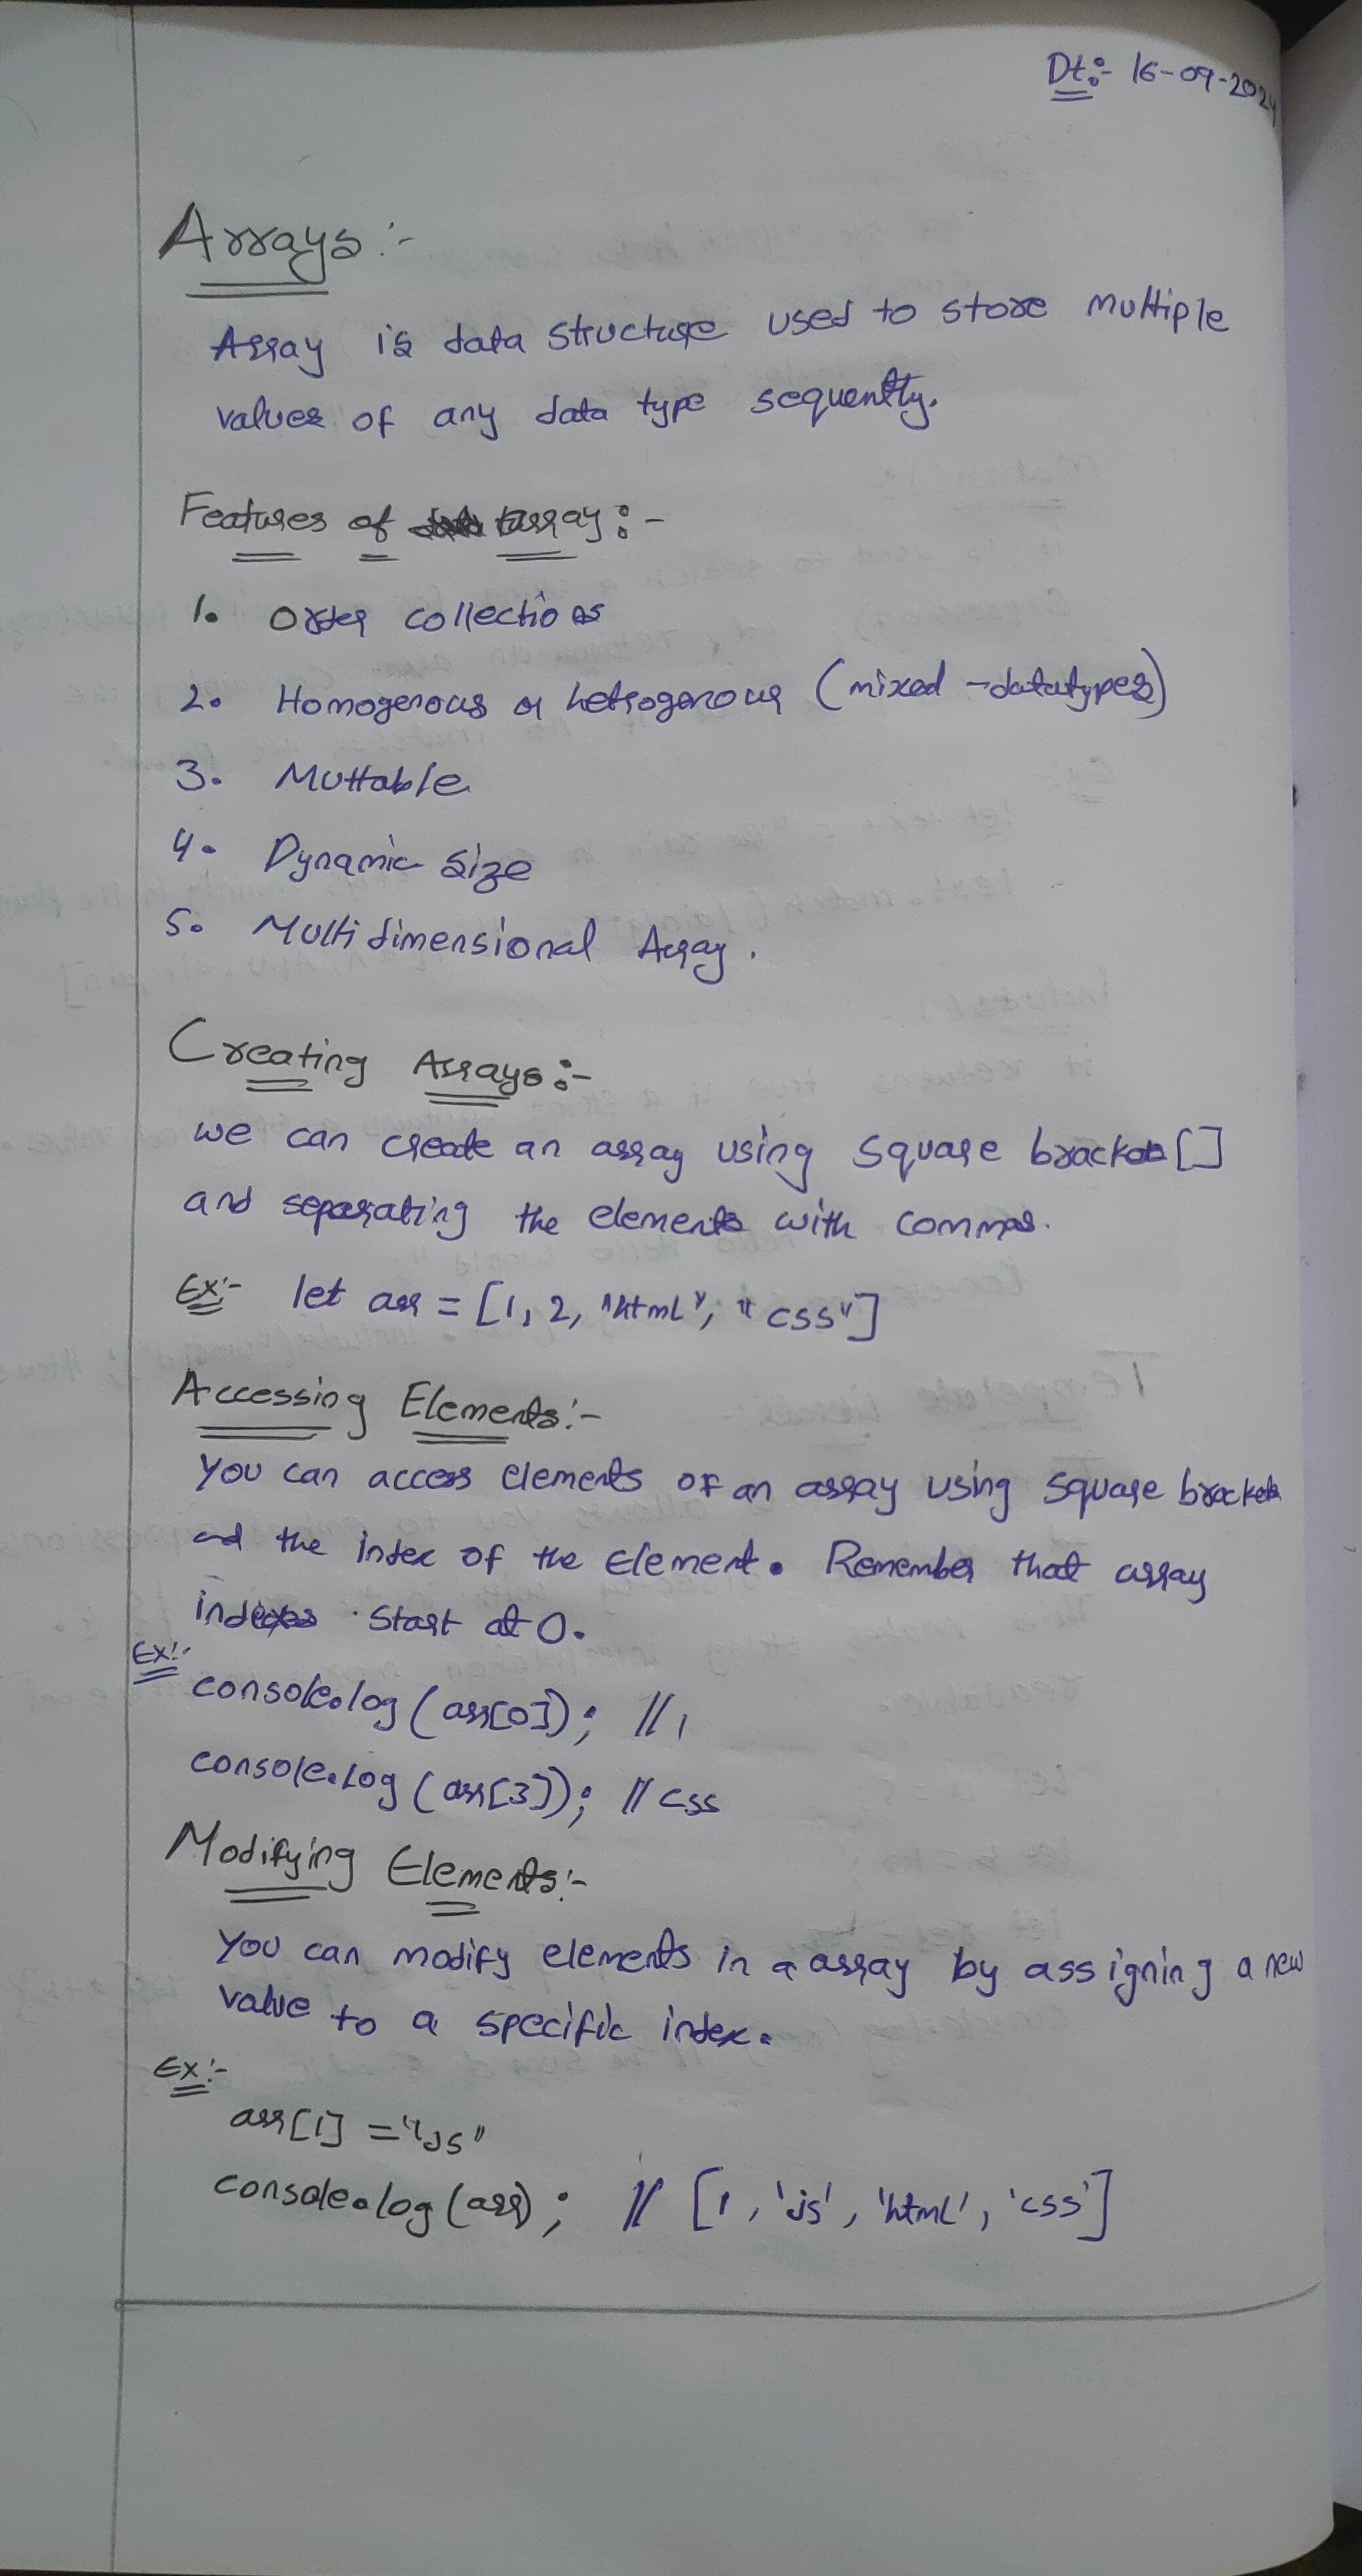 Dt:- 16-09-2024
Arrays:-
Array is data structure used to store multiple
values of any data type sequently.
Features of array:-
1. Order collections
2. Homogenous or hetrogenous (mixed-datatypes)
3. Muttable
4. Dynamic Size
5. Multidimensional Array.
Creating Arrays:-
we can create an array using square brackets []
and separating the elements with commas.
Ex:- let arr = [1, 2, "html", "css"]
Accessing Elements:-
You can access elements of an array using square brackets
and the index of the element. Remember that array
indexes start at 0.
Ex:-
console.log(arr[0]); //1
console.log(arr[3]); // css
Modifying Elements:-
You can modify elements in a array by assigning a new
value to a specific index.
Ex:-
arr[1] = "JS"
console.log(arr); // [1, 'js', 'html', 'css']